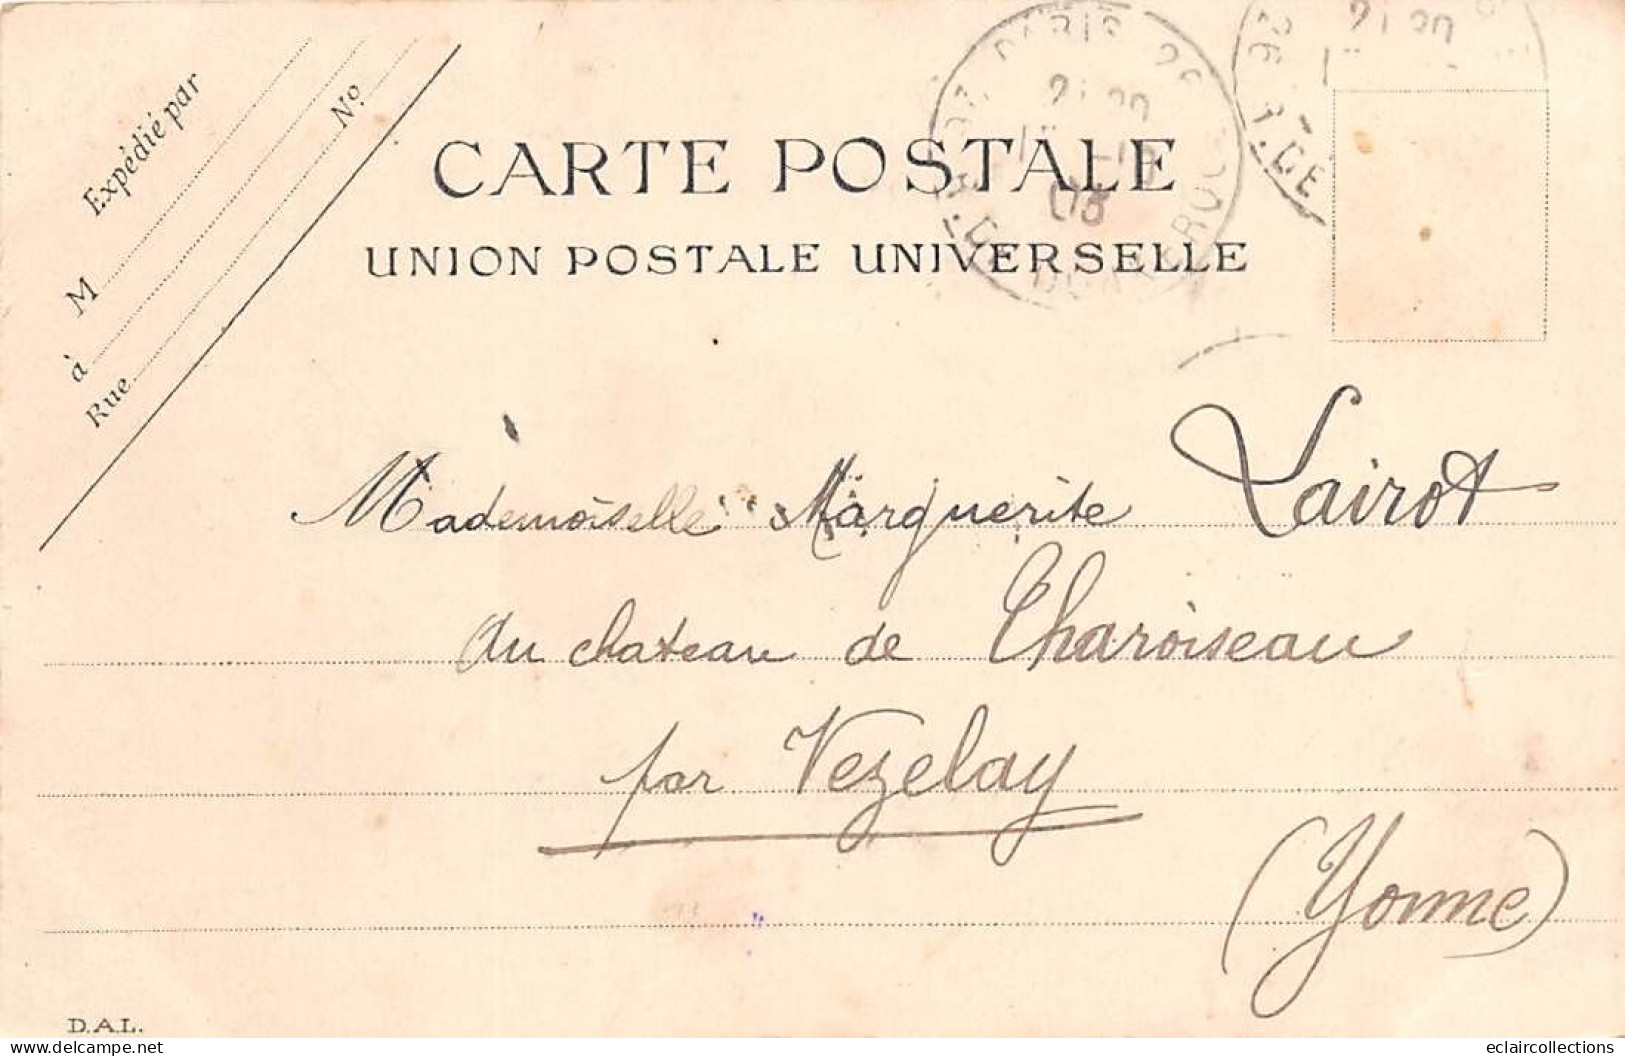 Expédié par
M
à
Rue
Nº
CARTE POSTALE
UNION POSTALE UNIVERSELLE
PARIS
21 20
03
Mademoiselle Marguerite Lairot
Au chateau de Charoiseau
par Vezelay
(Yonne)
D.A.L.
eclaircollections